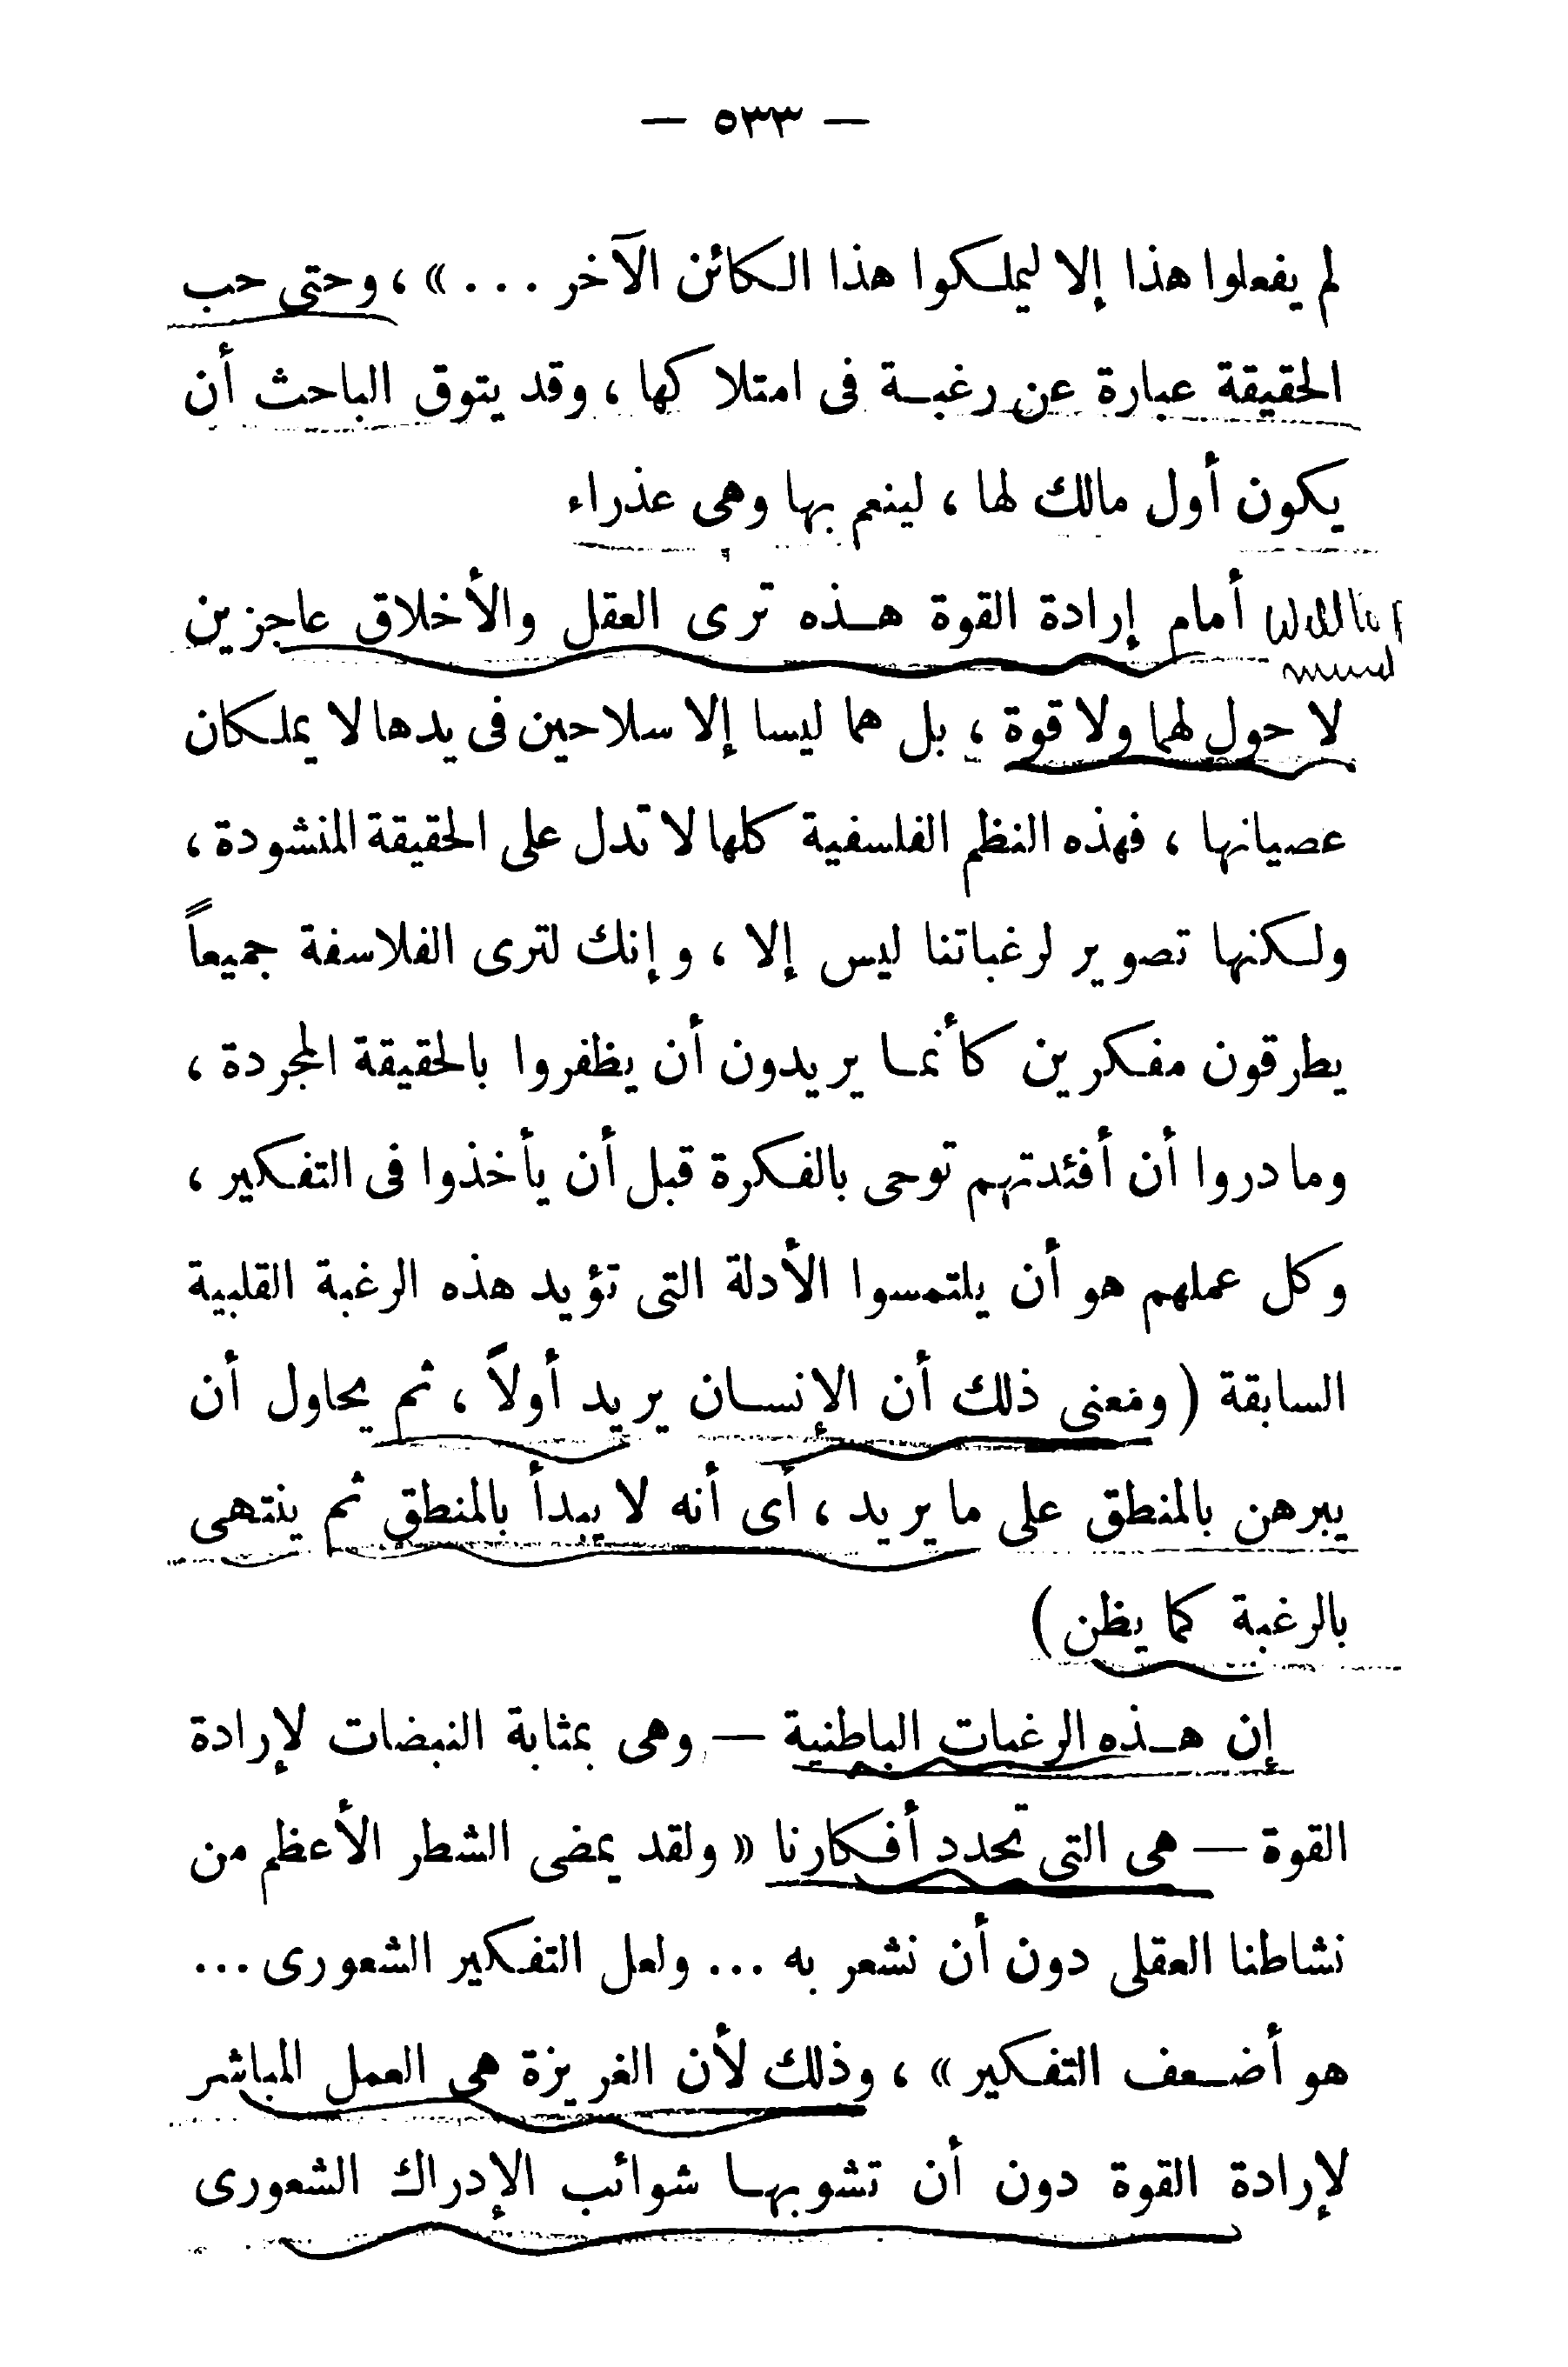 — ٥٣٣ —
لم يفعلوا هذا إلا ليملكوا هذا الكائن الآخر ... » ، وحتى حب
الحقيقة عبارة عن رغبة فى امتلاكها ، وقد يتوق الباحث أن
يكون أول مالك لها ، لينعم بها وهى عذراء
أمام إرادة القوة هذه ترى العقل والأخلاق عاجزين
لا حول لهما ولا قوة ، بل هما ليسا إلا سلاحين فى يدها لا يملكان
عصيانها ، فهذه النظم الفلسفية كلها لا تدل على الحقيقة المنشودة ،
ولكنها تصوير لرغباتنا ليس إلا ، وإنك لترى الفلاسفة جميعاً
يطرقون مفكرين كأنما يريدون أن يظفروا بالحقيقة المجردة ،
وما دروا أن أفئدتهم توحى بالفكرة قبل أن يأخذوا فى التفكير ،
وكل عملهم هو أن يلتمسوا الأدلة التى تؤيد هذه الرغبة القلبية
السابقة ( ومعنى ذلك أن الإنسان يريد أولاً ، ثم يحاول أن
يبرهن بالمنطق على ما يريد ، أى أنه لا يبدأ بالمنطق ثم ينتهى
بالرغبة كما يظن )
إن هذه الرغبات الباطنية — وهى بمثابة النبضات لإرادة
القوة — هى التى تحدد أفكارنا « ولقد يمضى الشطر الأعظم من
نشاطنا العقلى دون أن نشعر به ... ولعل التفكير الشعورى ...
هو أضعف التفكير » ، وذلك لأن الغريزة هى العمل المباشر
لإرادة القوة دون أن تشوبها شوائب الإدراك الشعورى